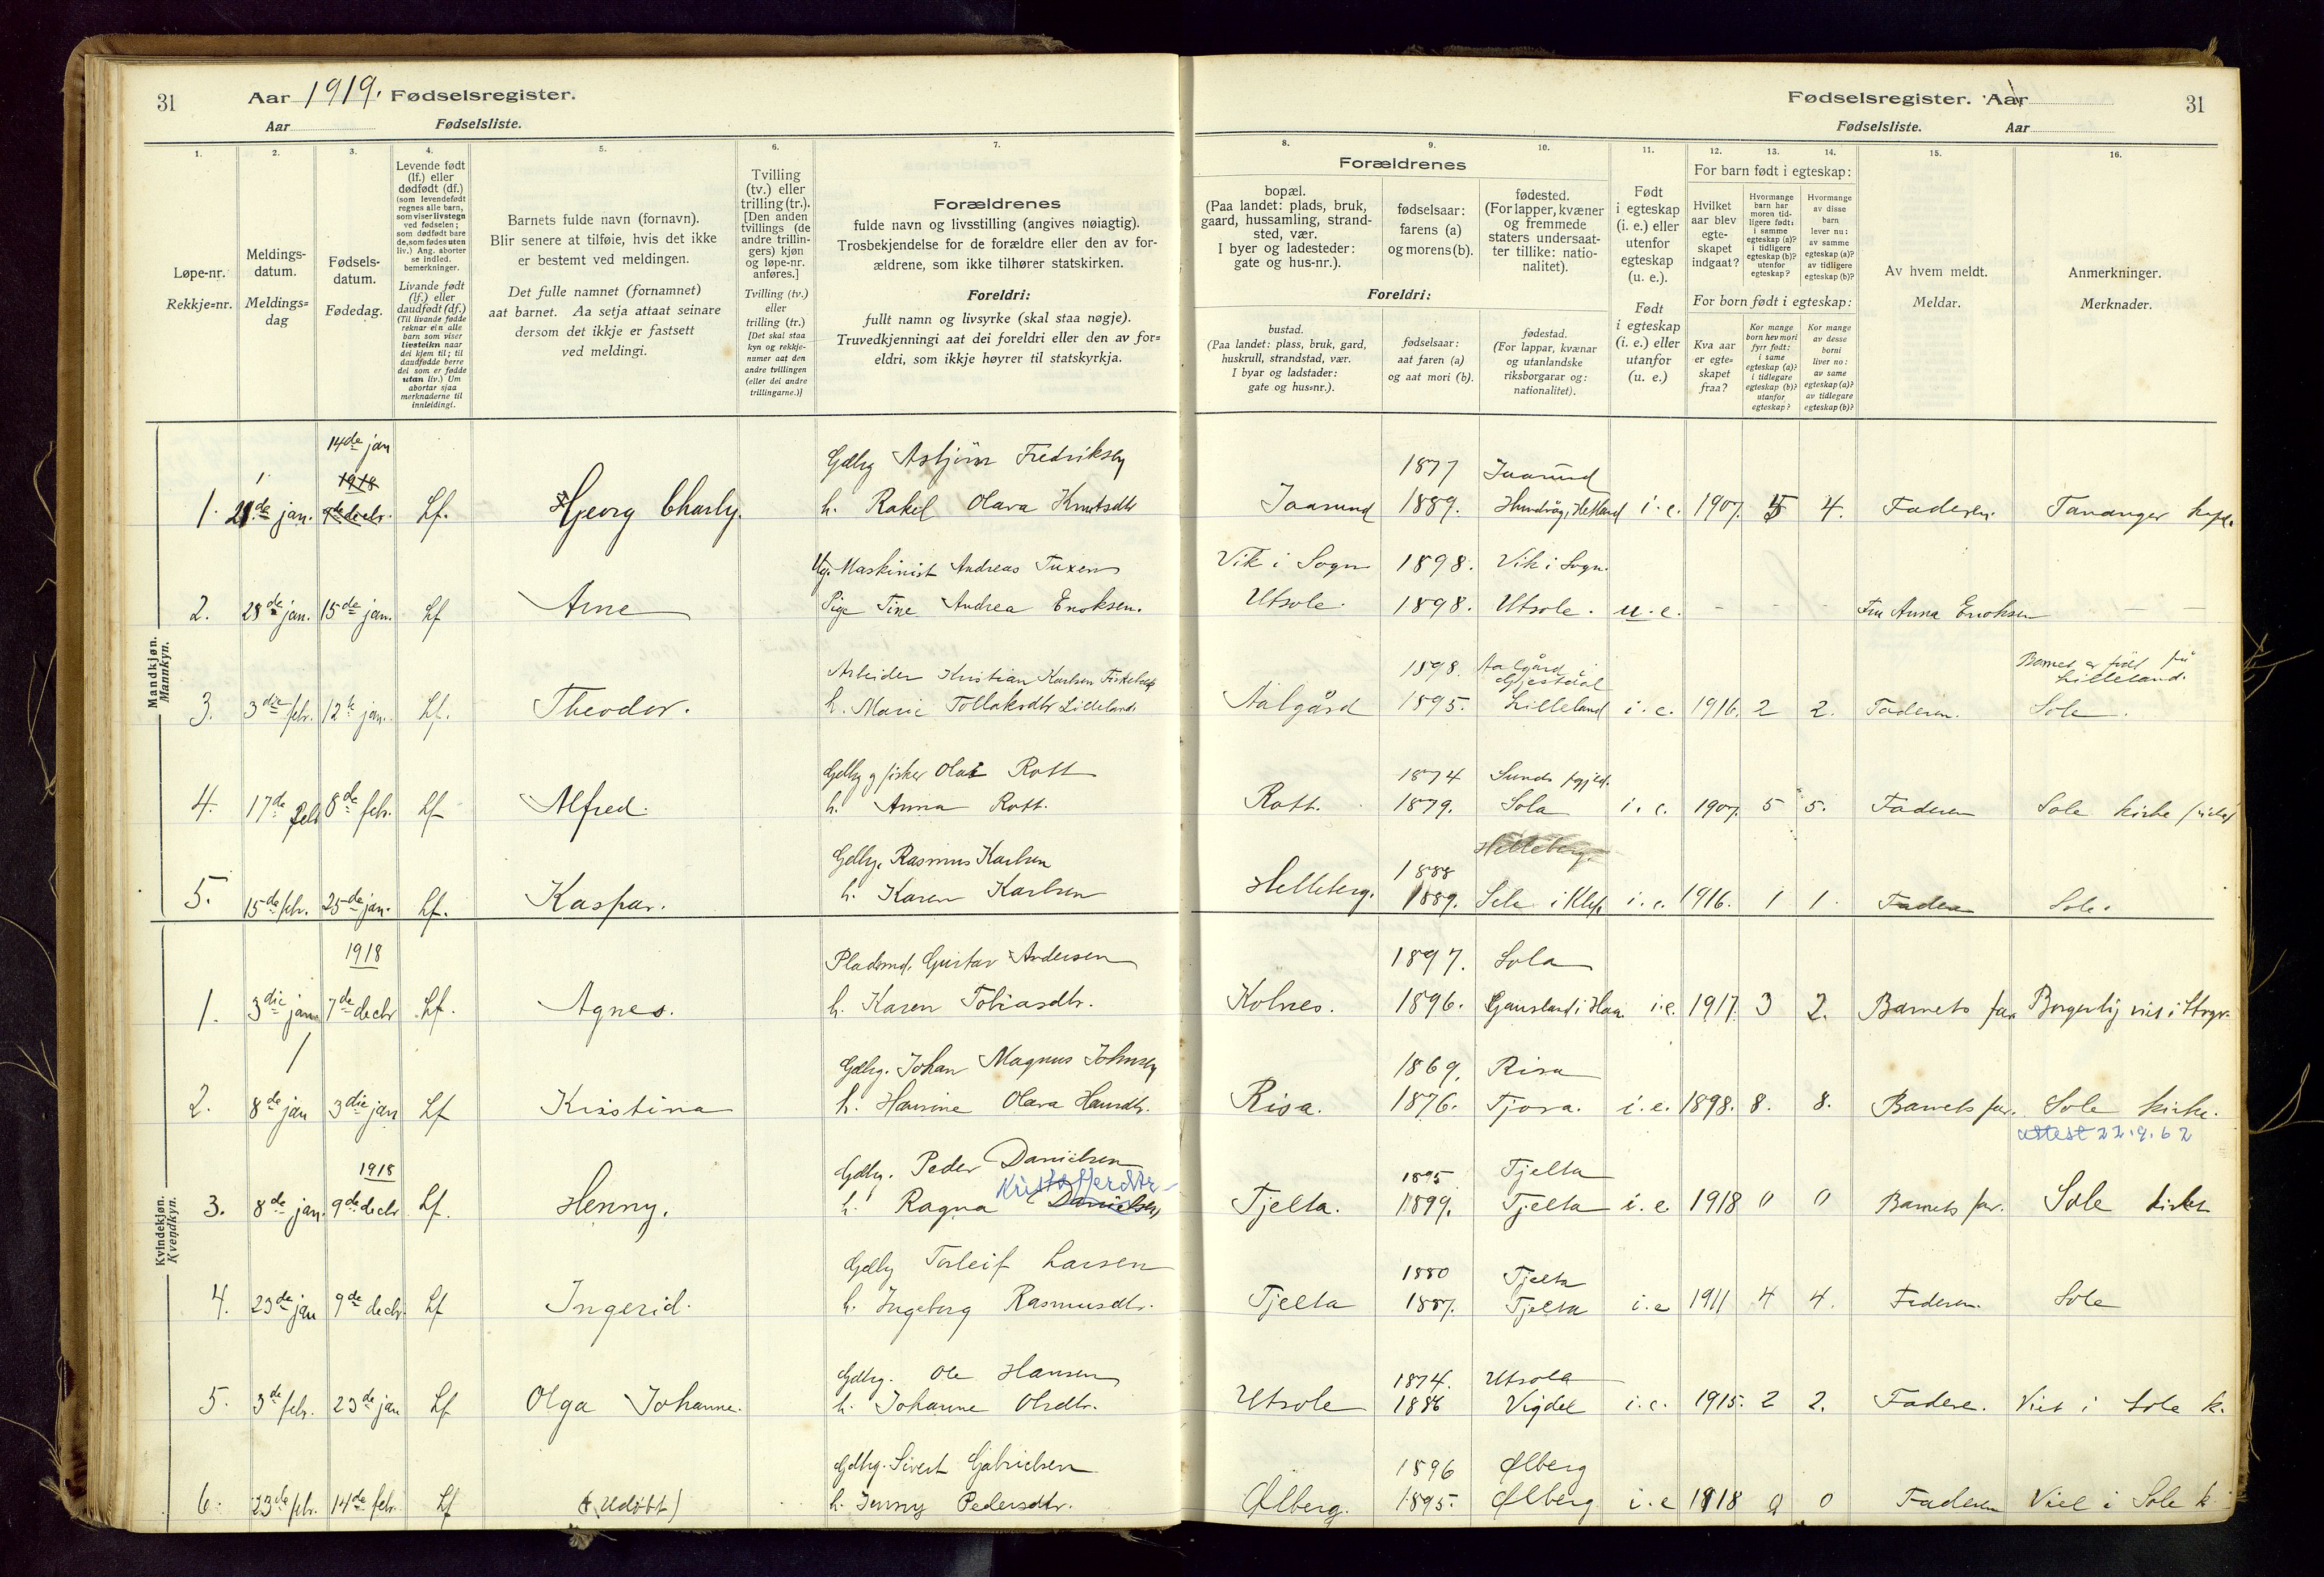 31
Aar 1919. Fødselsregister.
Aar
Fødselsliste.
1.
Løpe-nr.
Rekkje=nr.
2.
Meldings-
datum.
Meldings=
dag
3.
Fødsels-
datum.
Fødedag.
4.
Levende født
(lf.) eller
dødfødt (df.)
(som levendefødt
regnes alle barn,
som viser livstegn
ved fødselen;
som dødfødt bare
de, som fødes uten
liv.) Ang. aborter
se indled.
bemerkninger.
Livande født
(lf.) eller
daudfødt (df.)
(Til livande fødde
reknar ein alle
barn som viser
livsteikn naar
dei kjem til; til
daudfødde berre
dei som er fødde
utan liv.) Um
abortar sjaa
merknaderne til
innleidingi.
5.
Barnets fulde navn (fornavn).
Blir senere at tilføie, hvis det ikke
er bestemt ved meldingen.
Det fulle namnet (fornamnet)
aat barnet. Aa setja attaat seinare
dersom det ikkje er fastsett
ved meldingi.
6.
Tvilling
(tv.) eller
trilling (tr.).
[Den anden
tvillings (de
andre trillin-
gers) kjøn
og løpe-nr.
anføres.]
Tvilling (tv.)
eller
trilling (tr.)
[Det skal staa
kyn og rekkje-
numer aat den
andre tvillingen
(eller dei andre
trillingarne.)]
7.
Forældrenes
fulde navn og livsstilling (angives nøiagtig).
Trosbekjendelse for de forældre eller den av for-
ældrene, som ikke tilhører statskirken.
Foreldri:
fullt namn og livsyrke (skal staa nøgje).
Truvedkjenningi aat dei foreldri eller den av for=
eldri, som ikkje høyrer til statskyrkja.
Fødselsregister. Aar
31
Fødselsliste. Aar
8.
Forældrenes
bopæl.
(Paa landet: plads, bruk,
gaard, hussamling, strand-
sted, vær.
I byer og ladesteder:
gate og hus-nr.).
Foreldri:
bustad.
(Paa landet: plass, bruk, gard,
huskrull, strandstad, vær.
I byar og ladstader:
gate og hus=nr.).
9.
fødselsaar:
farens (a)
og morens (b).
fødselsaar:
aat faren (a)
og aat mori (b).
10.
fødested.
(For lapper, kvæner
og fremmede
staters undersaat-
ter tillike: natio-
nalitet).
fødestad.
(For lappar, kvænar
og utanlandske
riksborgarar og:
nationalitet).
11.
Født
i egteskap
(i. e.) eller
utenfor
egteskap
(u. e.).
Født
i egteskap
(i. e.) eller
utanfor
(u. e.)
12.
13.
14.
For barn født i egteskap:
Hvilket
aar blev
egte-
skapet
indgaat?
Hvormange
barn har
moren tid-
ligere født:
i samme
egteskap (a)?
i tidligere
egteskap (b)?
utenfor
egteskap?
Hvormange
av disse
barn
lever nu:
av samme
egteskap (a)?
av tidligere
egteskap (b)?
For born født i egteskap:
Kva aar
er egte=
skapet
fraa?
Kor mange
born hev mori
fyrr født:
i same
egteskap (a)?
i tidlegare
egteskap (b)?
utanfor
egteskap?
Kor mange
av desse
borni
liver no:
av same
egteskap (a)?
av tidlegare
egteskap (b)?
15.
Av hvem meldt.
Meldar.
16.
Anmerkninger.
Merknader.
Mandkjøn.
Mannkyn.
14de jan
1918
Gdbrg Asbjörn Fredriksen 1877 Jaasund
1. 21de jan. 9de decbr. Lf. Georg Charly. h. Rakel Olava Knutsdtr Jaasund 1889. Hundvåg, Hetland i. e. 1907. 5 4. Faderen. Tananger kapel.
Ug. Maskinist Andreas Tuxen Vik i Sogn 1898. Vik i Sogn.
2. 28de jan. 15de jan. Lf Arne Pige Tine Andrea Enoksen. Utsole. 1898. Utsole. u. e. - - - Fru Anna Enoksen
Arbeider Kristian Karlsen 1898. Aalgård i Gjestdal Barnet er födt på
Lilleland.
3. 3die febr. 12te jan. Lf. Theodor. h. Marie Tollaksdtr Lilleland Aalgård 1895. Lilleland i. e. 1916. 2 2. Faderen. Sole.
Gdbg og fisker Olai Rott 1874 Sunds
4. 17de feb 8de febr. Lf Alfred. h. Anna Rott. Rott. 1879. Sola i. e. 1907. 5 5. Faderen Sole kirke
Gdbg. Rasmus Karlsen 1888 Helleberg.
5. 15de febr. 25de jan. Lf. Kaspar. h. Karen Karlsen Helleberg. 1889. Sele i Klep i. e. 1916. 1 1. Faderen Sole.
Kvindekjøn.
Kvendkyn.
1918
Pladsmd. Gustav Andersen 1897. Sola
1. 3die jan 7de decbr Lf. Agnes. h. Karen Tobiasdtr. Kolnes. 1896. Gausland i Haa i. e. 1917. 3 2. Barnets far. Borgerlig viet i Stvgr.
Gdbrg. Johan Magnus Johnsen 1869. Risa
2. 8de jan 3die jan Lf Kristina h. Hansine Olava Hansdtr. Risa. 1876. Tjora. i. e. 1898. 8. 8. Barnets far. Sole kirke.
attest 22.9.62
1918
Gdbg. Peder Danielsen 1895 Tjelta
Kristofferdtr
3. 8de jan. 9de decbr Lf. Henny. h. Ragna Danielsen Tjelta. 1899. Tjelta i. e. 1918 0 0 Barnets far. Sole kirke
Gdbg Torleif Larsen 1880 Tjelta
4. 23de jan 9de decbr. Lf Ingerid. h. Ingeborg Rasmusdtr. Tjelta 1887. Tjelta i. e 1911 4 4. Faderen. Sole
Gdbg. Ole Hansen 1874. Utsola
5. 3de febr. 23de jan Lf Olga Johanne. h. Johanne Olsdtr. Utsole 1886 Vigdel i. e. 1915. 2 2. Fadere. Viet i Sole k.
Gdbg. Sivert Gabrielsen 1896 Ølberg
6. 23de febr. 14de febr. Lf (Udöbt) h. Jenny Pedersdtr. Ølberg. 1895. Ølberg i. e 1918 0 0 Faderen Viet i Sole k